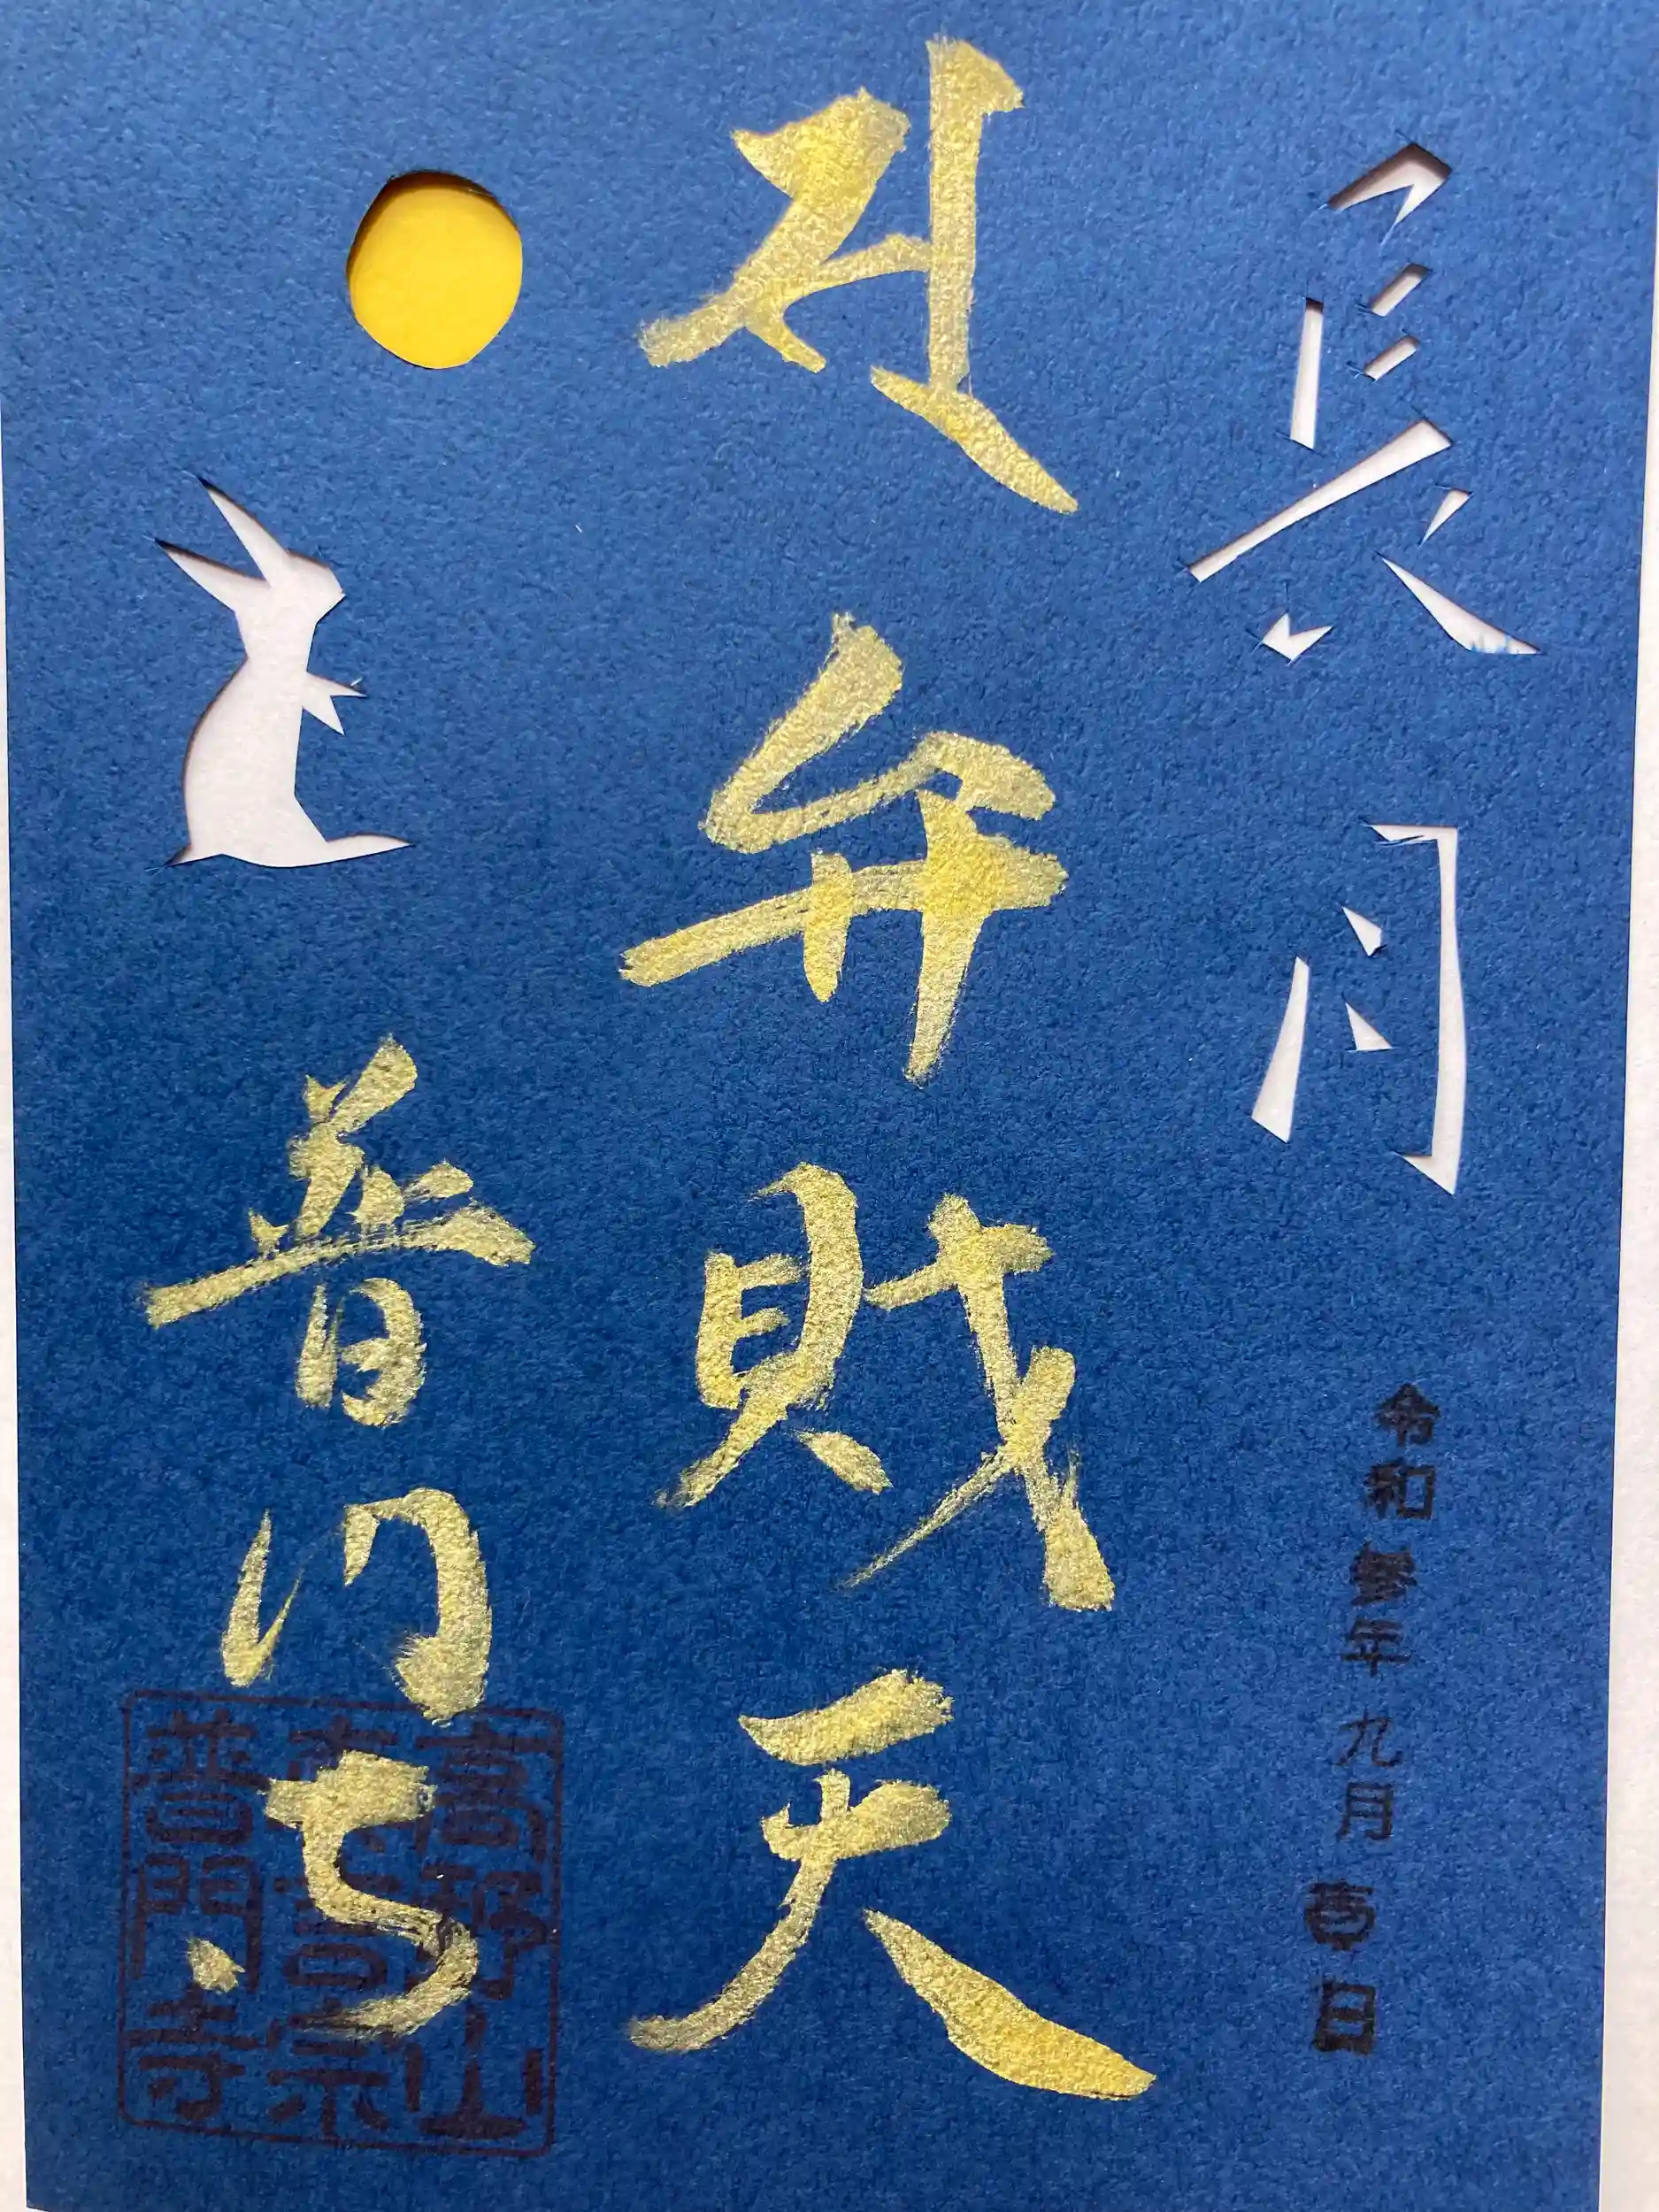 長月
令和参年九月吉日
弁財天
普門寺
高野山
真言宗
普門寺